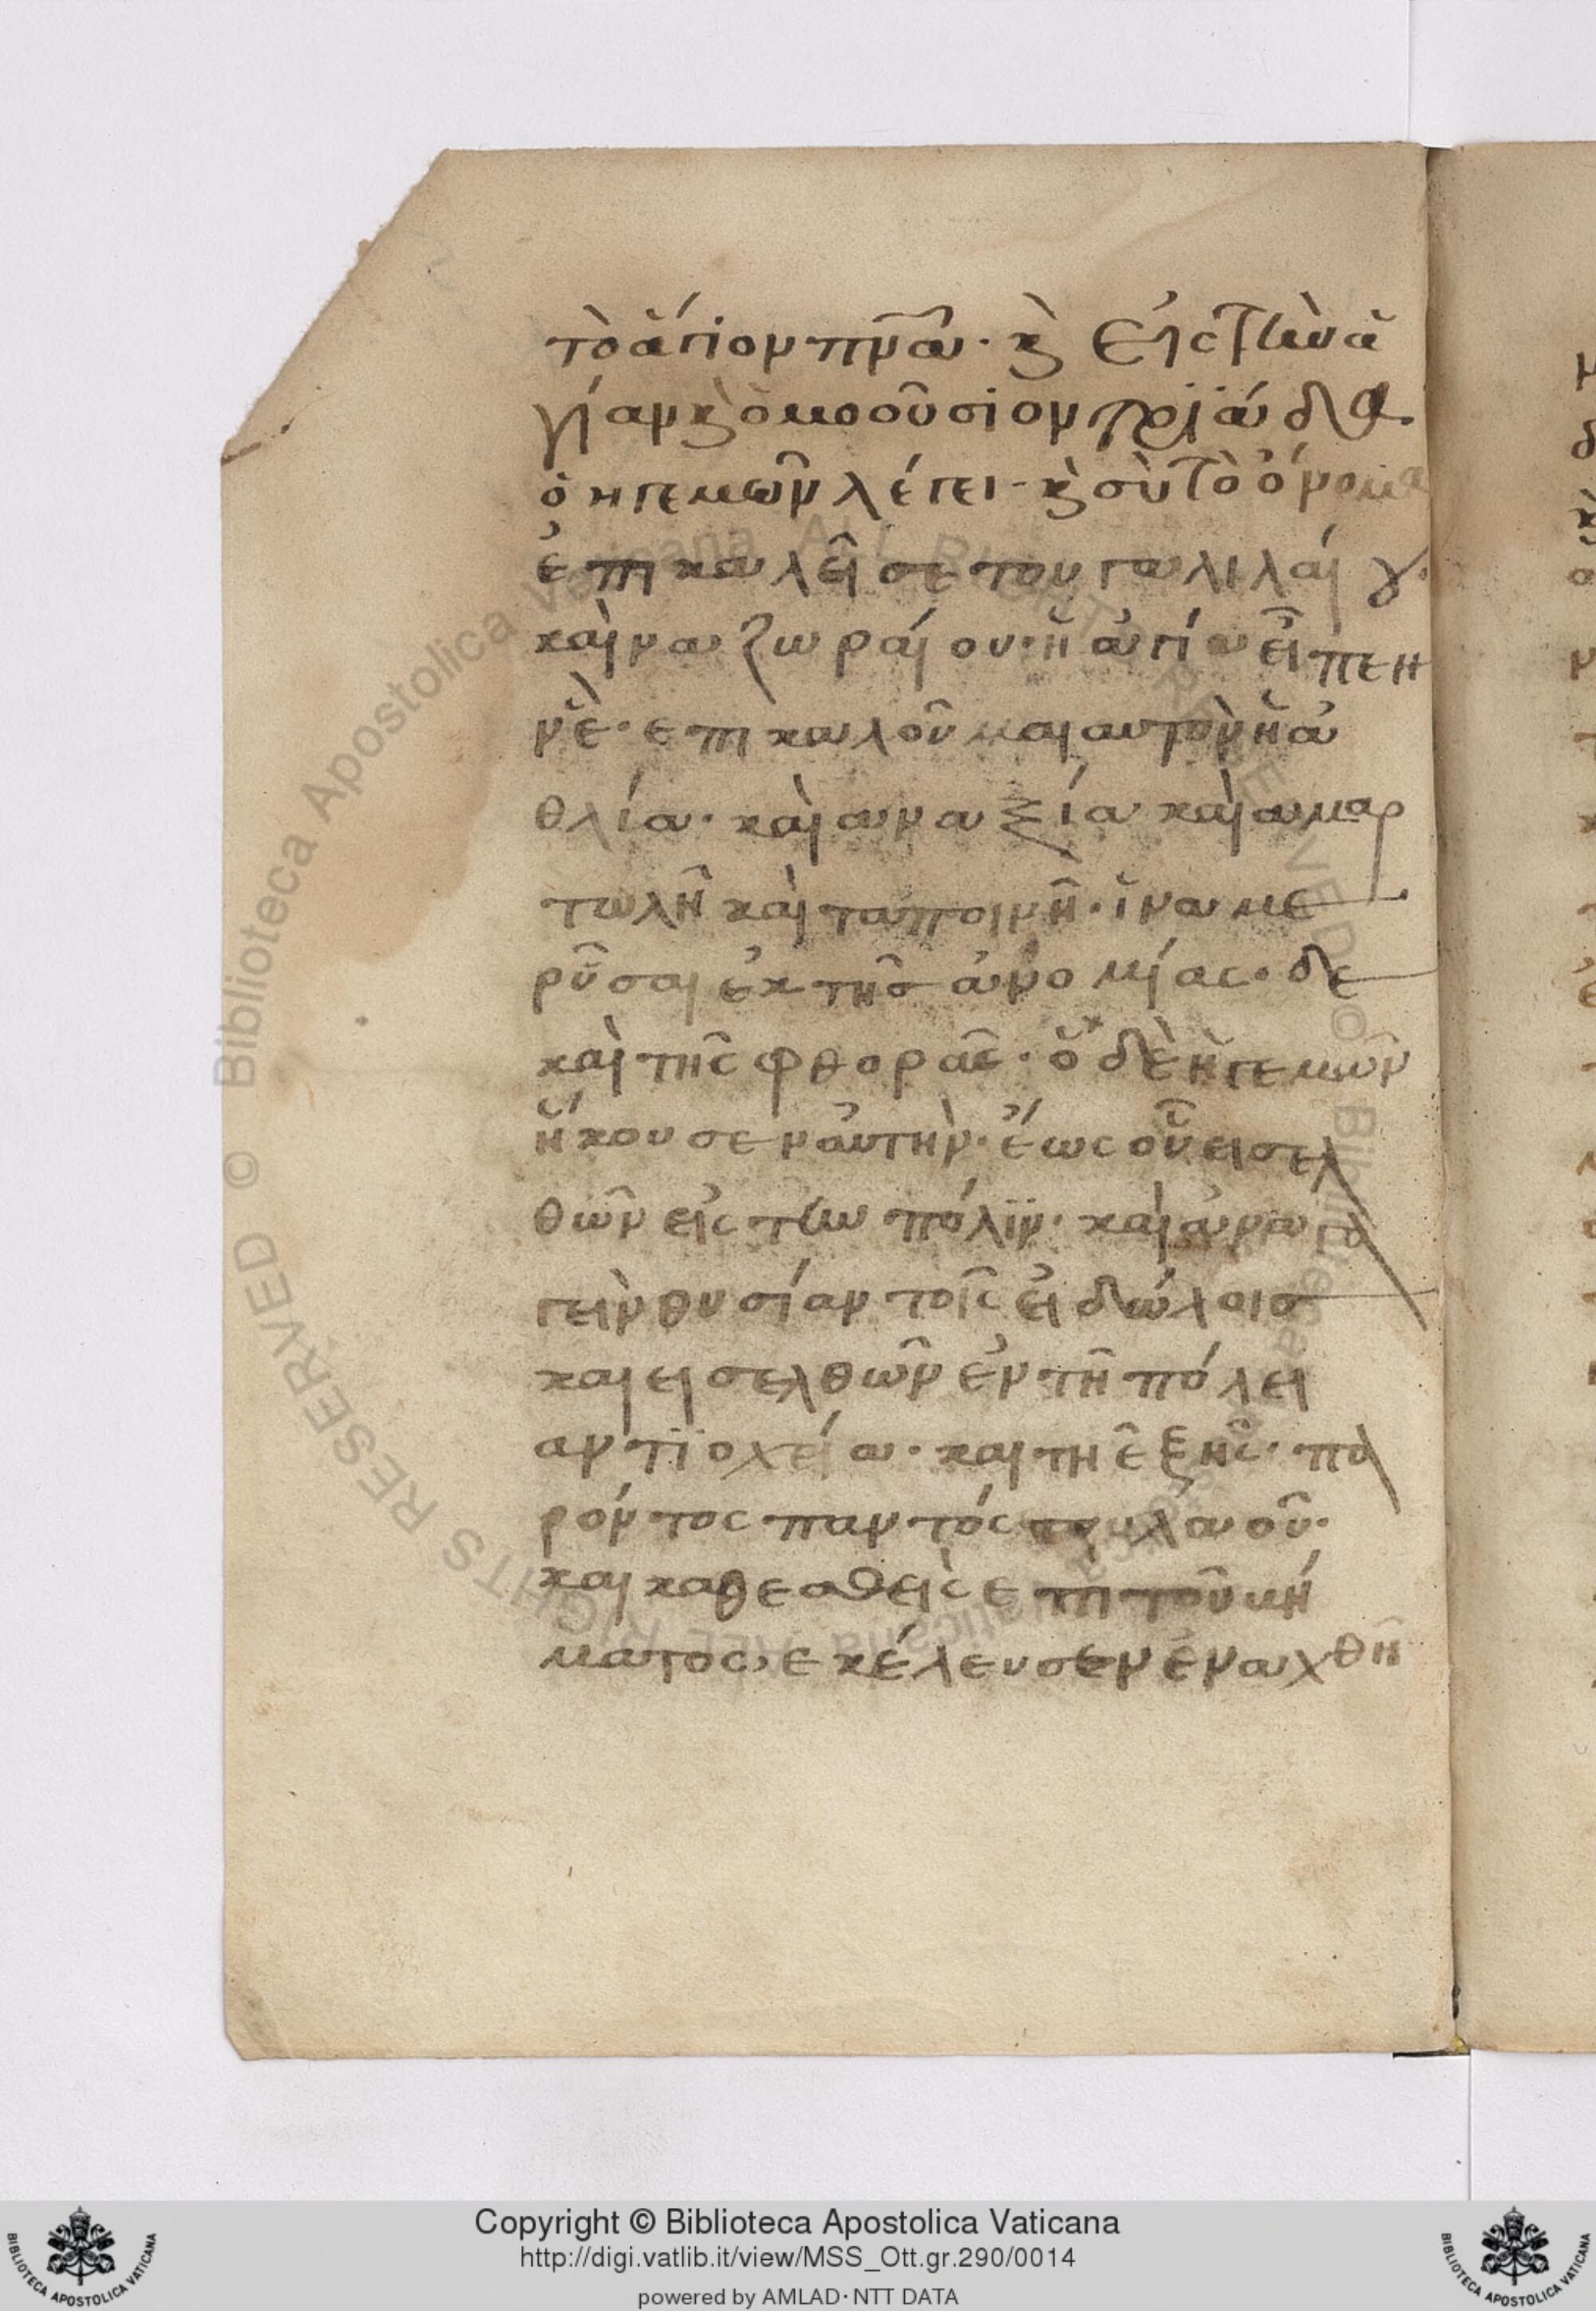 τὸ ἅγιον πνα· κ εἰς τὴν ἁ
γίαν κ ὁμοούσιον τριάδα
ὁ ηγεμὼν λέγει· κ σὺ τὸ ὄνομα
ἐπικαλεῖσε του γαλιλαίου·
καὶ ναζωραίου· ἡ ἁγία εἶπεν
νὲ· επικαλοῦμαι αυτὸν ἡ ἀ
θλία· καὶ αναξία καὶ αμαρ
τωλῆ καὶ ταποινῆ· ἵνα με
ρῦσαι ἐκ τῆς ἀνομίας· δε
καὶ τῆς φθορᾶς· ὁ δὲ ἡγεμῶν
ἤκουσεν ἀυτὴν· ἕως οὗ εισελ
θῶν εἰς τὴν πόλϊν· καὶ ἀναγα
γεὶν θυσίαν τοῖς εἰδώλοις
και εισελθῶν ἐν τῆ πόλει
αντϊοχεία· και τη ἑξῆς· πα
ρόντος παντός του λαοῦ·
και καθεσθεὶς επι τοῦ κή
ματος, εκέλευσεν ἐναχθῆ
Copyright © Biblioteca Apostolica Vaticana
http://digi.vatlib.it/view/MSS_Ott.gr.290/0014
powered by AMLAD·NTT DATA